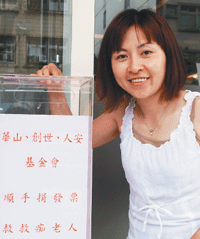 華山、創世、人安
基金會
順手捐發票
救救痴老人